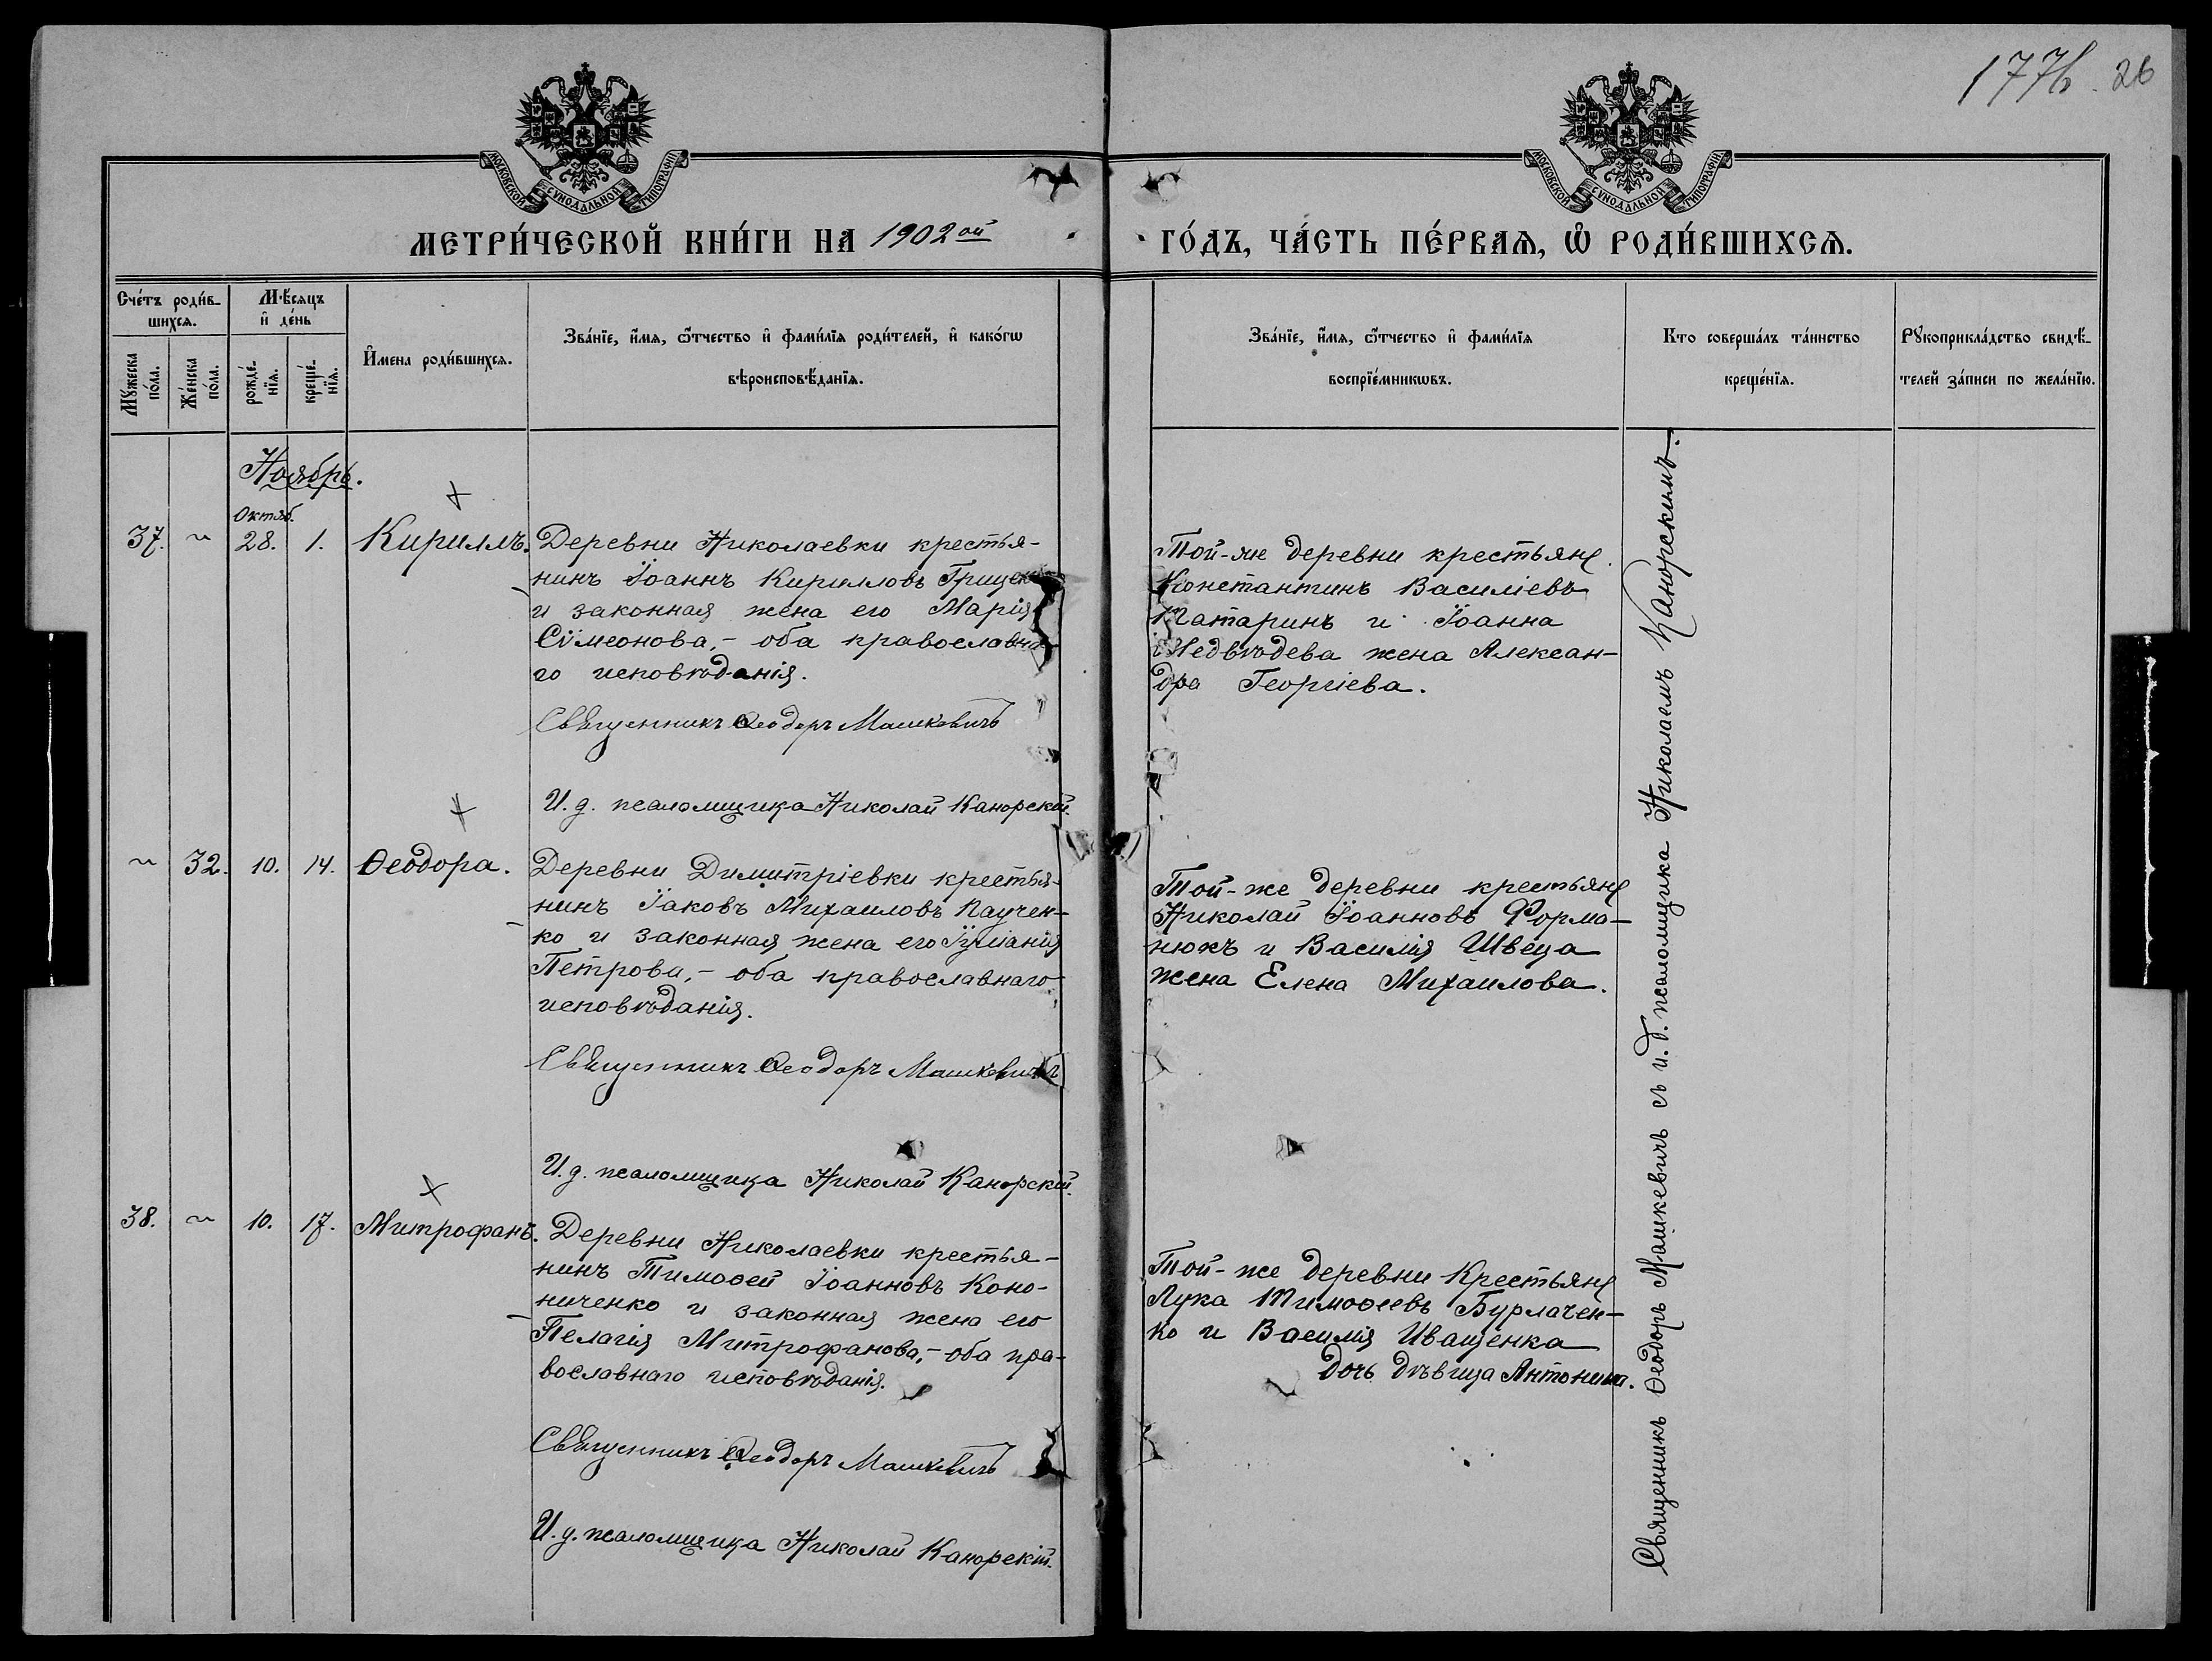 177б. 26
МОСКОВСКОЙ СѴНОДАЛЬНОЙ ТИПОГРАФІИ
МОСКОВСКОЙ СѴНОДАЛЬНОЙ ТИПОГРАФІИ
МЕТРИ́ЧЕСКОЙ КНИ́ГИ НА 1902ой
ГО́ДЪ, ЧА́СТЬ ПЕ́РВАѦ, Ѡ҆ РОДИ́ВШИХСѦ.
Сче́тъ роди́в-
шихсѧ.
Мꙋжеска по́ла.
Же́нска по́ла.
Мѣ́сѧцъ
и҆ де́нь
рожде́-
нїѧ.
креще́-
нїѧ.
И҆мена роди́вшихсѧ.
Зва́нїе, и҆́мѧ, ѻ҆́тчество и҆ фами́лїѧ роди́телей, и҆ како́гѡ
вѣроисповѣ́данїѧ.
Зва́нїе, и҆́мѧ, ѻ҆́тчество и҆ фами́лїѧ
воспрїе́мникѡвъ.
Кто соверша́лъ та́инство
креще́нїѧ.
Рꙋкоприкла́дство свидѣ́-
телей за́писи по жела́нїю.
Ноябрь.
Октяб.
37. 28. 1. Кириллъ.
Деревни Николаевки крестья-
нинъ Іоаннъ Кирилловъ
и законная жена его Марія
Сѵмеонова,- оба православна-
го исповѣданія.
Священникъ Ѳеодоръ Машкевичъ
И. д. псаломщика Николай Канорскій.
Той-же деревни крестьяне
Константинъ Василіевъ
Татаринъ и Іоанна
Медвѣдева жена Алексан-
дра Георгіева.
32. 10. 14. Ѳеодора.
Деревни Димитріевки крестья-
нинъ Іаковъ Михаиловъ Паучен-
ко и законная жена его Іуліанія
Петрова,- оба православнаго
исповѣданія.
Священникъ Ѳеодоръ Машкевичъ
И. д. псаломщика Николай Канорскій.
Той-же деревни крестьяне
Николай Іоанновъ Форма-
нюкъ и Василія Швеца
жена Елена Михаилова.
38. 10. 17. Митрофанъ.
Деревни Николаевки крестья-
нинъ Тимоѳей Іоанновъ Коно-
ниченко и законная жена его
Пелагія Митрофанова,- оба пра-
вославнаго исповѣданія.
Священникъ Ѳеодоръ Машкевичъ
И. д. псаломщика Николай Канорскій.
Той-же деревни Крестьяне
Лука Тимоѳеевъ Бурлачен-
ко и Василія Иващенка
дочь дѣвица Антонина.
Священникъ Ѳеодоръ Машкевичъ съ и. д. псаломщика Николаемъ Канорскимъ.